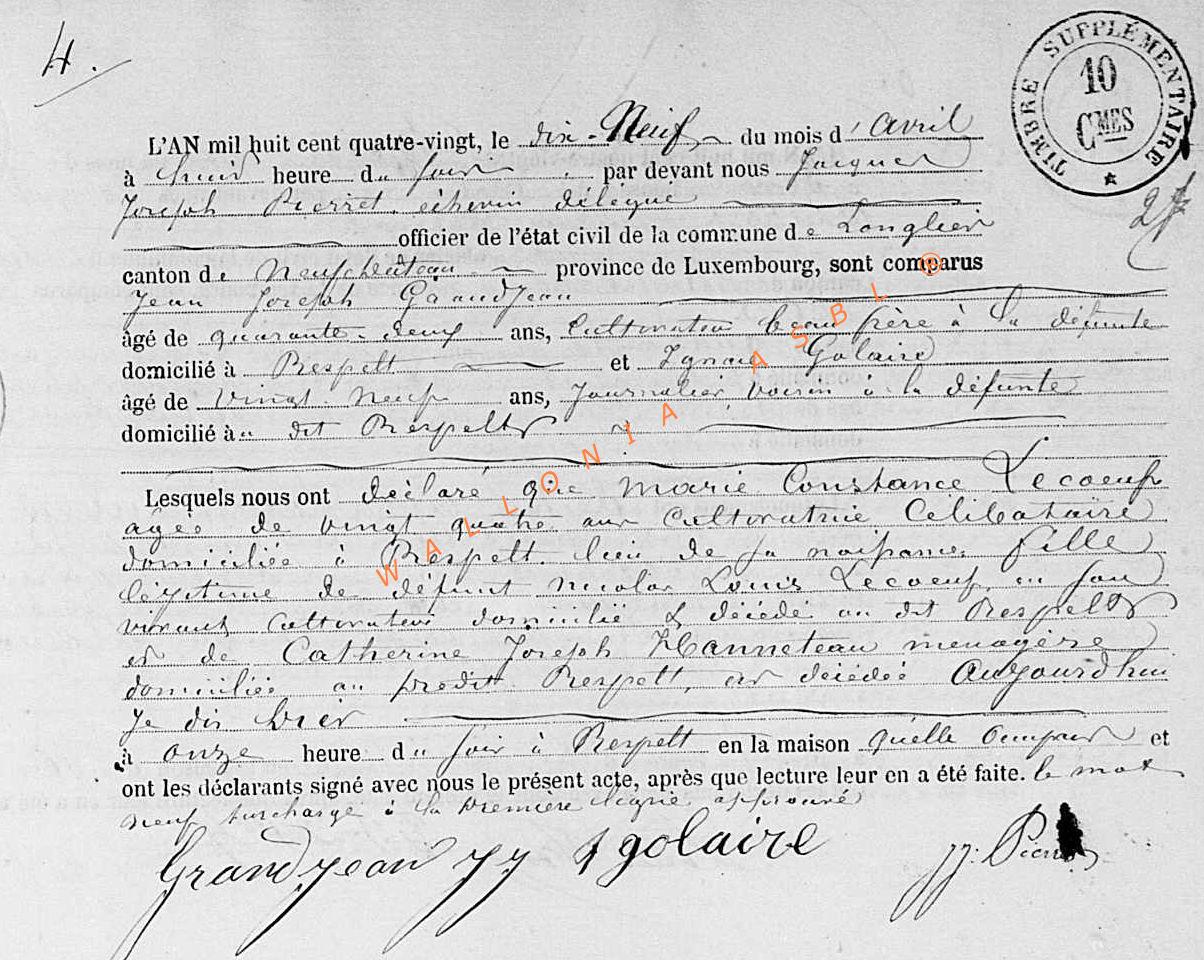 4.
TIMBRE SUPPLÉMENTAIRE
10
CMES
L'AN mil huit cent quatre-vingt, le dix-Neuf du mois d'avril
à huit heure du soir par devant nous Jacques
Joseph Pierret échevin délégué
officier de l'état civil de la commune de Longlier
canton de Neufchâteau province de Luxembourg, sont comparus
Jean Joseph Grandjean
âgé de quarante-deux ans, Cultivateur beau frère à la défunte
domicilié à Respelt et Ignace Golaire
âgé de vingt-Neuf ans, Journalier voisin à la défunte
domicilié au dit Respelt
Lesquels nous ont déclaré que Marie Constance Lecoeuf
agée de vingt quatre ans Cultivatrice Célibataire
domiciliée à Respelt lieu de sa naissance, fille
légitime de défunt Nicolas Louis Lecoeuf en son
vivant Cultivateur domicilié & décédé au dit Respelt
et de Catherine Joseph Hanneteau menagère
domiciliée au predit Respelt, est décédée Aujourd'hui
Je dis hier
à onze heure du soir à Respelt en la maison quelle occupait et
ont les déclarants signé avec nous le présent acte, après que lecture leur en a été faite. le mot
neuf surchargé à la première ligne approuvé
Grandjean JJ I golaire JJ. Pierret
WALLONIA ASBL ®